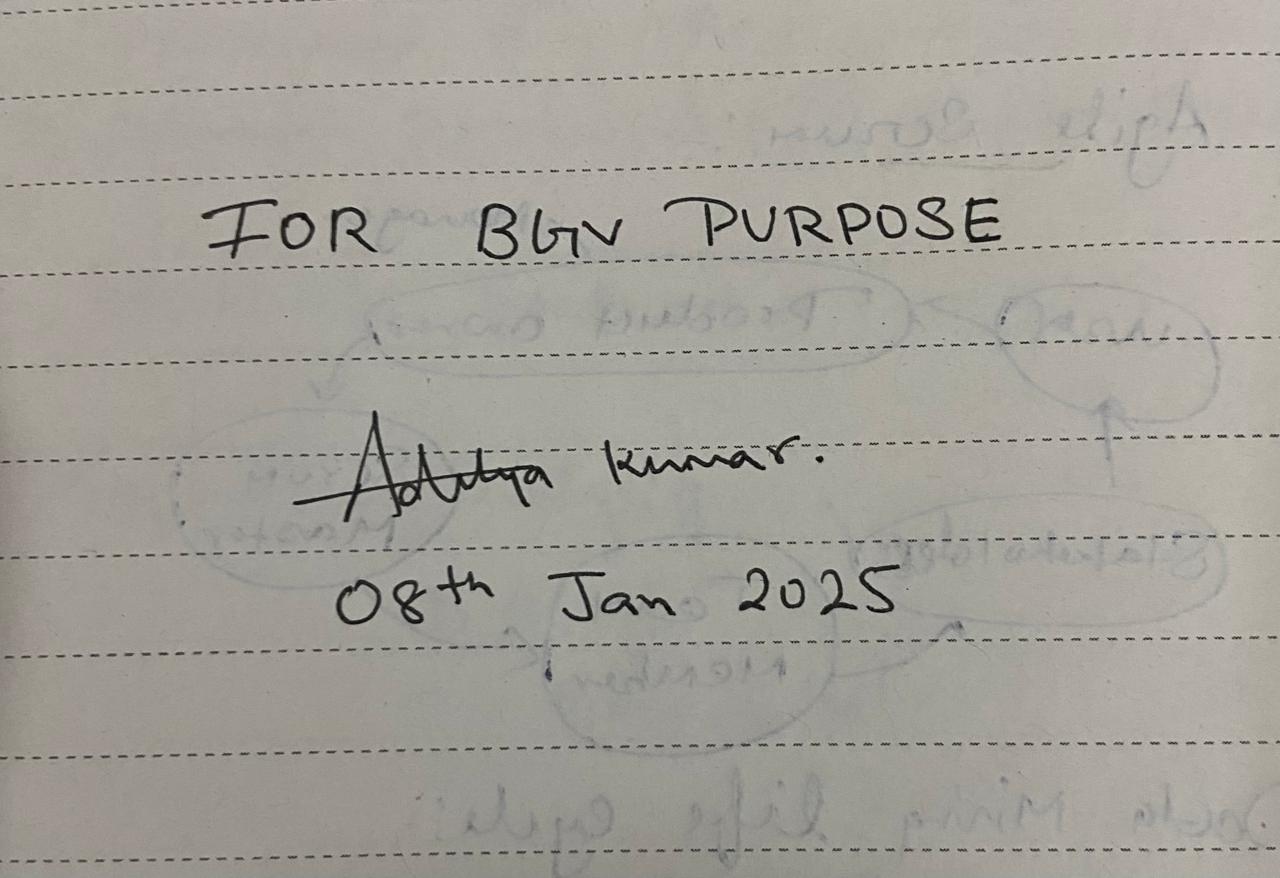 FOR BGV PURPOSE
Aditya Kumar.
08th Jan 2025